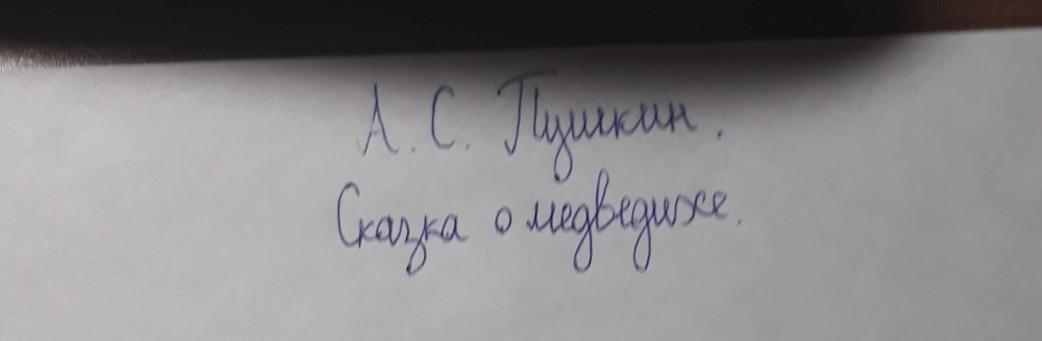 А. С. Пушкин.
Сказка о медведихе.